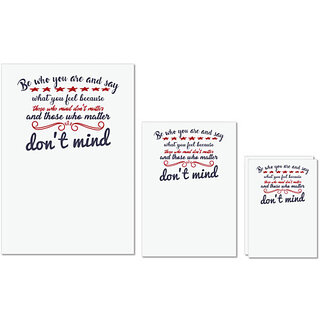 Be who you are and say
what you feel because
those who mind don't matter
and those who matter
don't mind
Be who you are and say
what you feel because
those who mind don't matter
and those who matter
don't mind
Be who you are and say
what you feel because
those who mind don't matter
and those who matter
don't mind